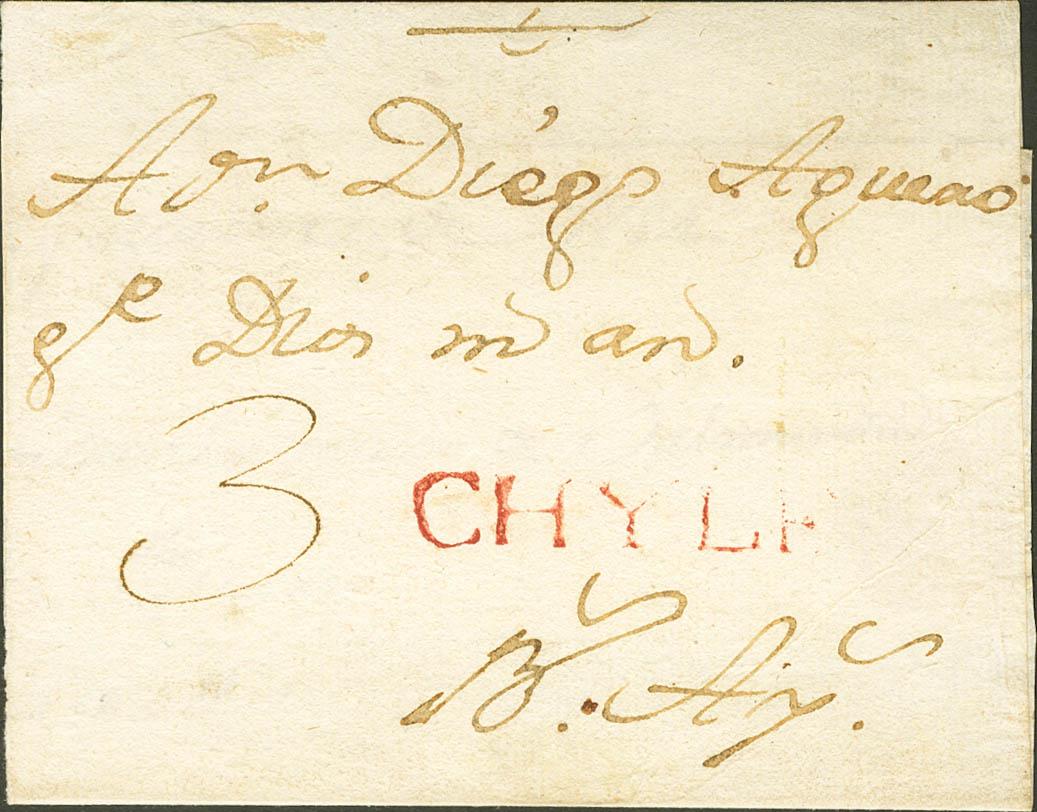 A Dn. Diego Aguero
ge Dios ms as.
3 CHYLE
Bs. Ays.